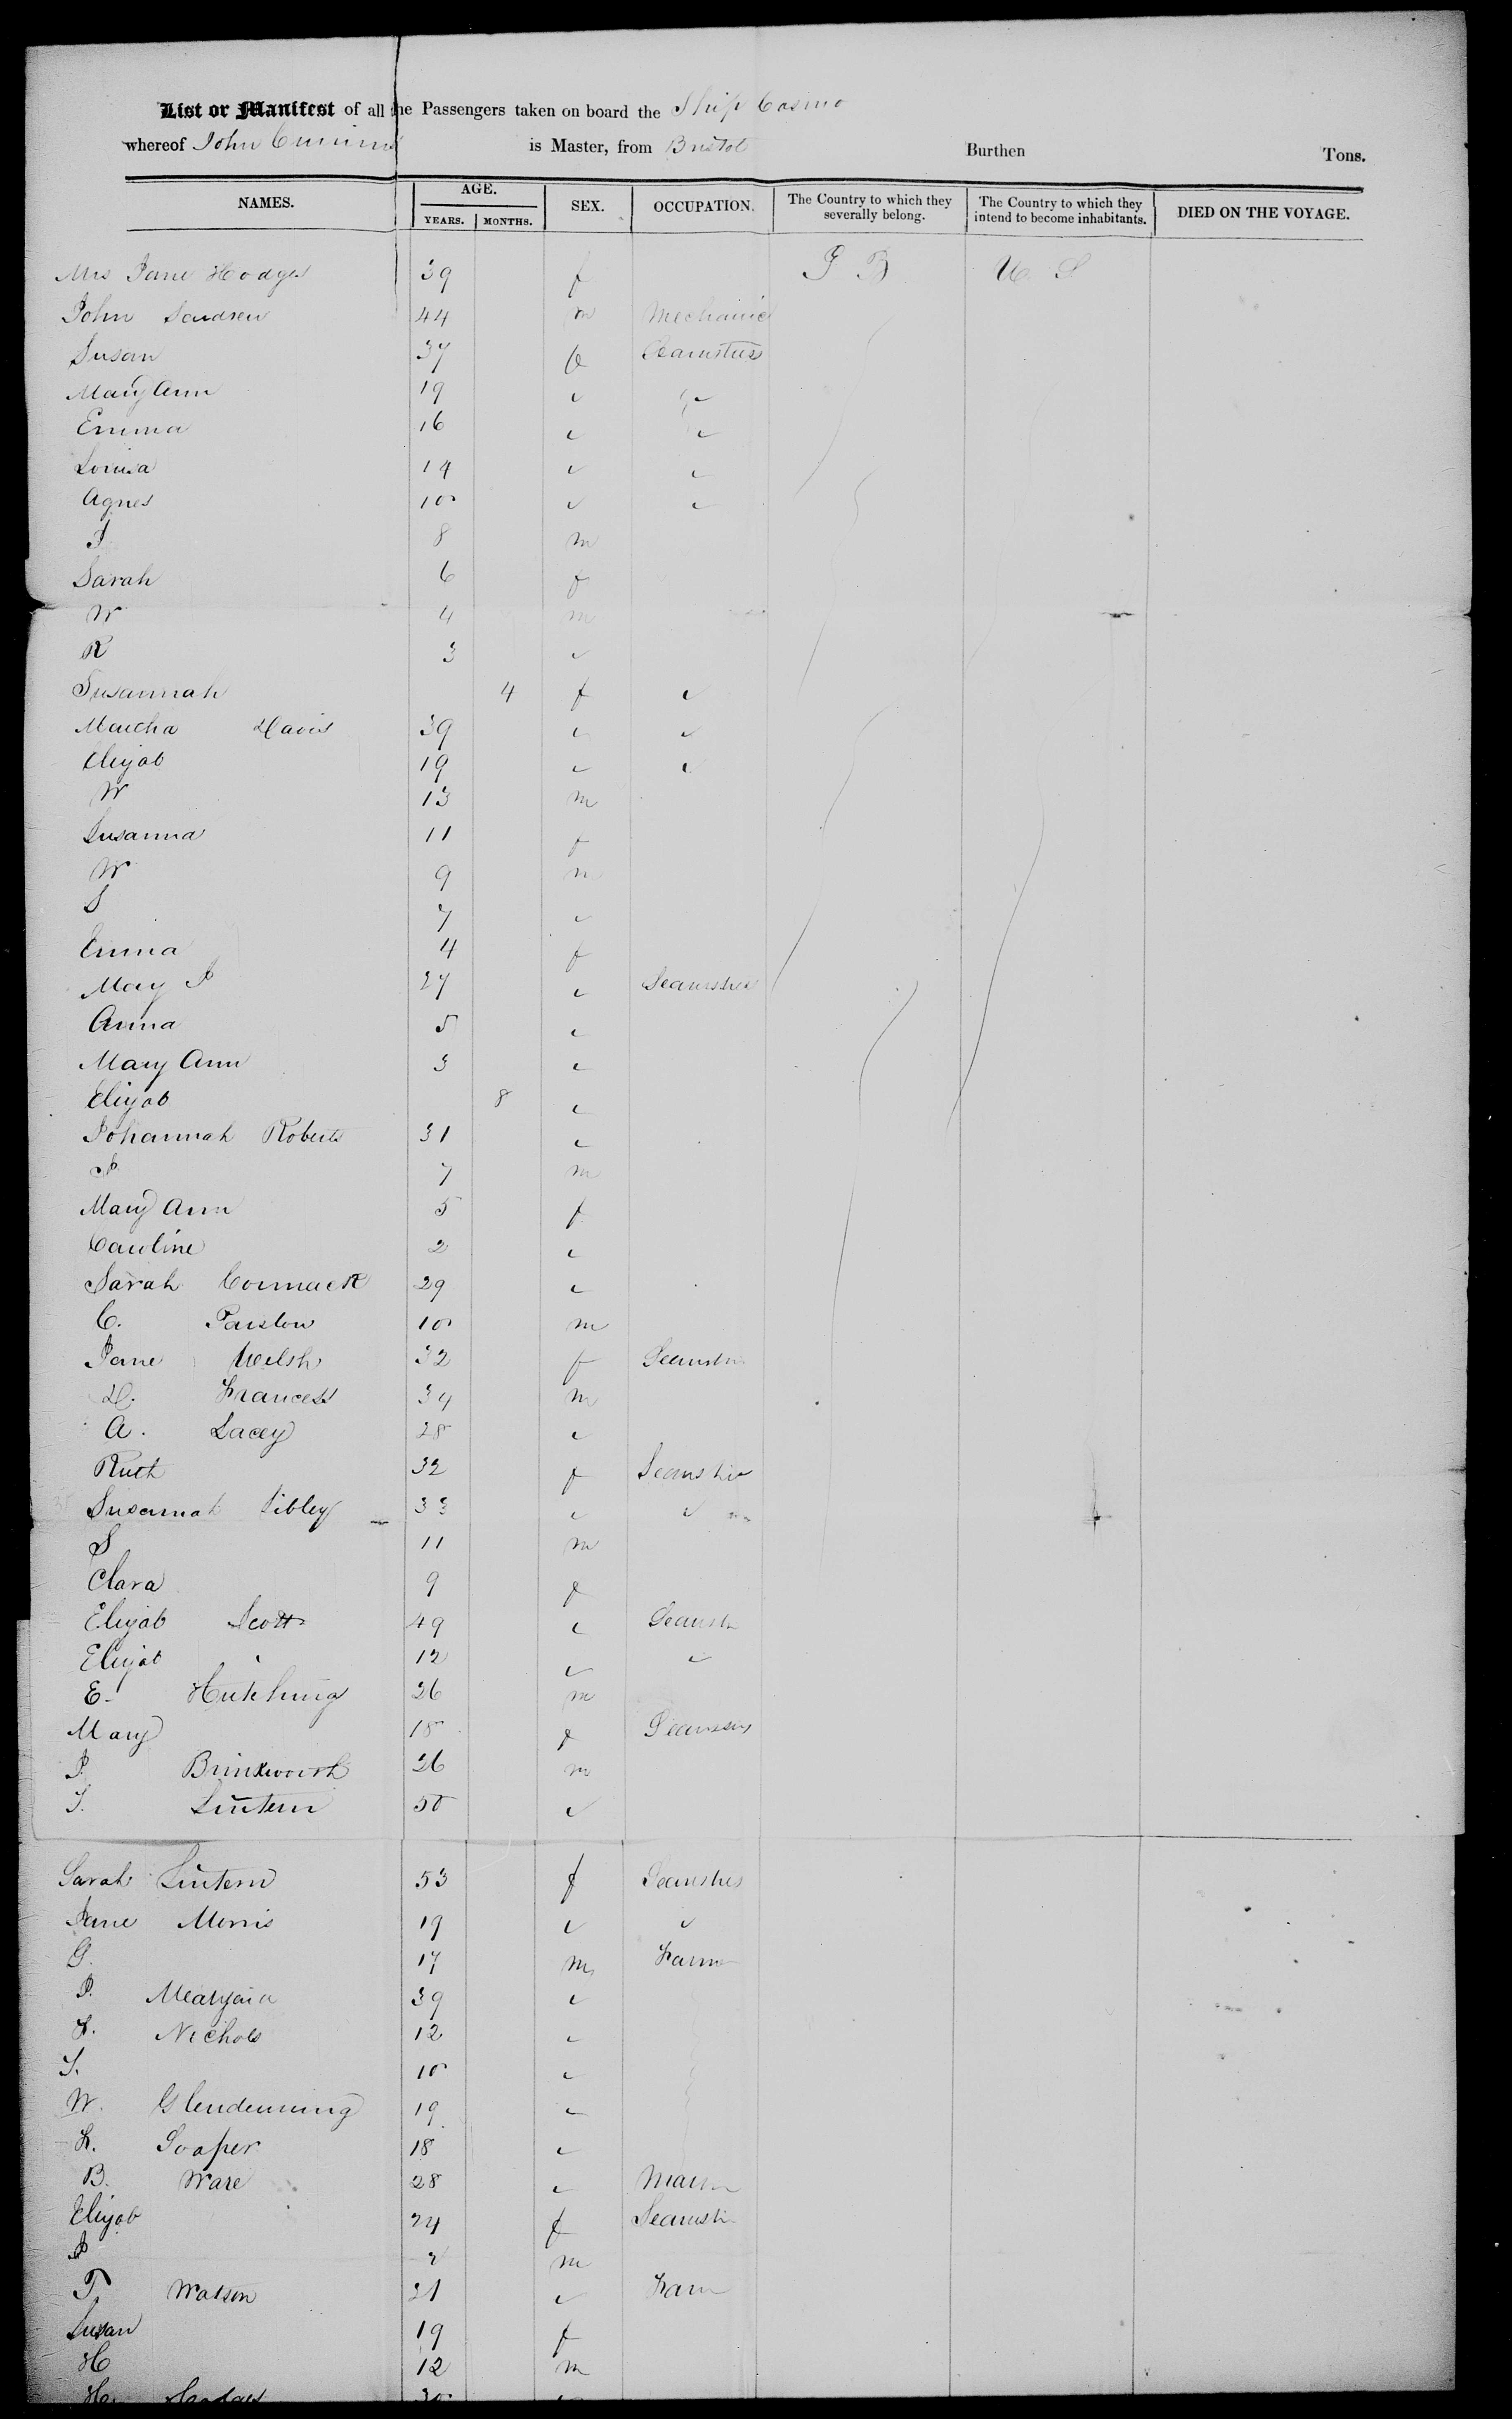 List or Manifest of all the Passengers taken on board the Ship Cosmo
whereof John is Master, from Bristol Burthen Tons.
NAMES. AGE. YEARS. MONTHS. SEX. OCCUPATION. The Country to which they severally belong. The Country to which they intend to become inhabitants. DIED ON THE VOYAGE.
Mrs Jane Hodges 39 f G B U S
John 44 m Mechanic
Susan 37 f
Mary Ann 19
Emma 16
Louisa 14
Agnes 10
J 8 m
Sarah 6 f
W 4 m
R 3
Susannah 4 f
Martha Davis 39
Elizab 19
W 13 m
Susanna 11 f
W 9 m
S 7
Emma 4 f
Mary J 27 Seamstres
Anna 5
Mary Ann 3
Elizab 8
Johannah Roberts 31
J 7 m
Mary Ann 5 f
Cauline 2
Sarah Cormack 29
C. Parslow 10 m
Jane Welsh 32 f Seamstrs
D. Francess 34 m
A. Lacey 28
Ruth 32 f Seamstrs
Susannah Sibley 33
S 11 m
Clara 9 f
Elizab Scott 49 Seamst
Elizab 12
E. Hutchings 26 m
Mary 18 f
J. Brinkworth 26 m
J. Lintern 50
Sarah Lintern 53 f Seamstres
Jane Morris 19
G. 17 m Farm
J. 39
F. Nichols 12
S. 10
W. Glendenning 19
F. Sooper 18
B. Ware 28 Mason
Elizab 24 f Seamst
J 2 m
T Watson 21 Farm
Susan 19 f
H 12 m
H. 30